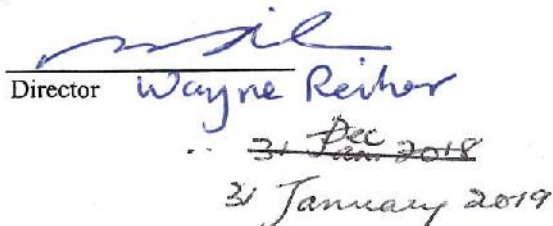 Director Wayne Reiher
Dec
31 Jan. 2018
31 January 2019